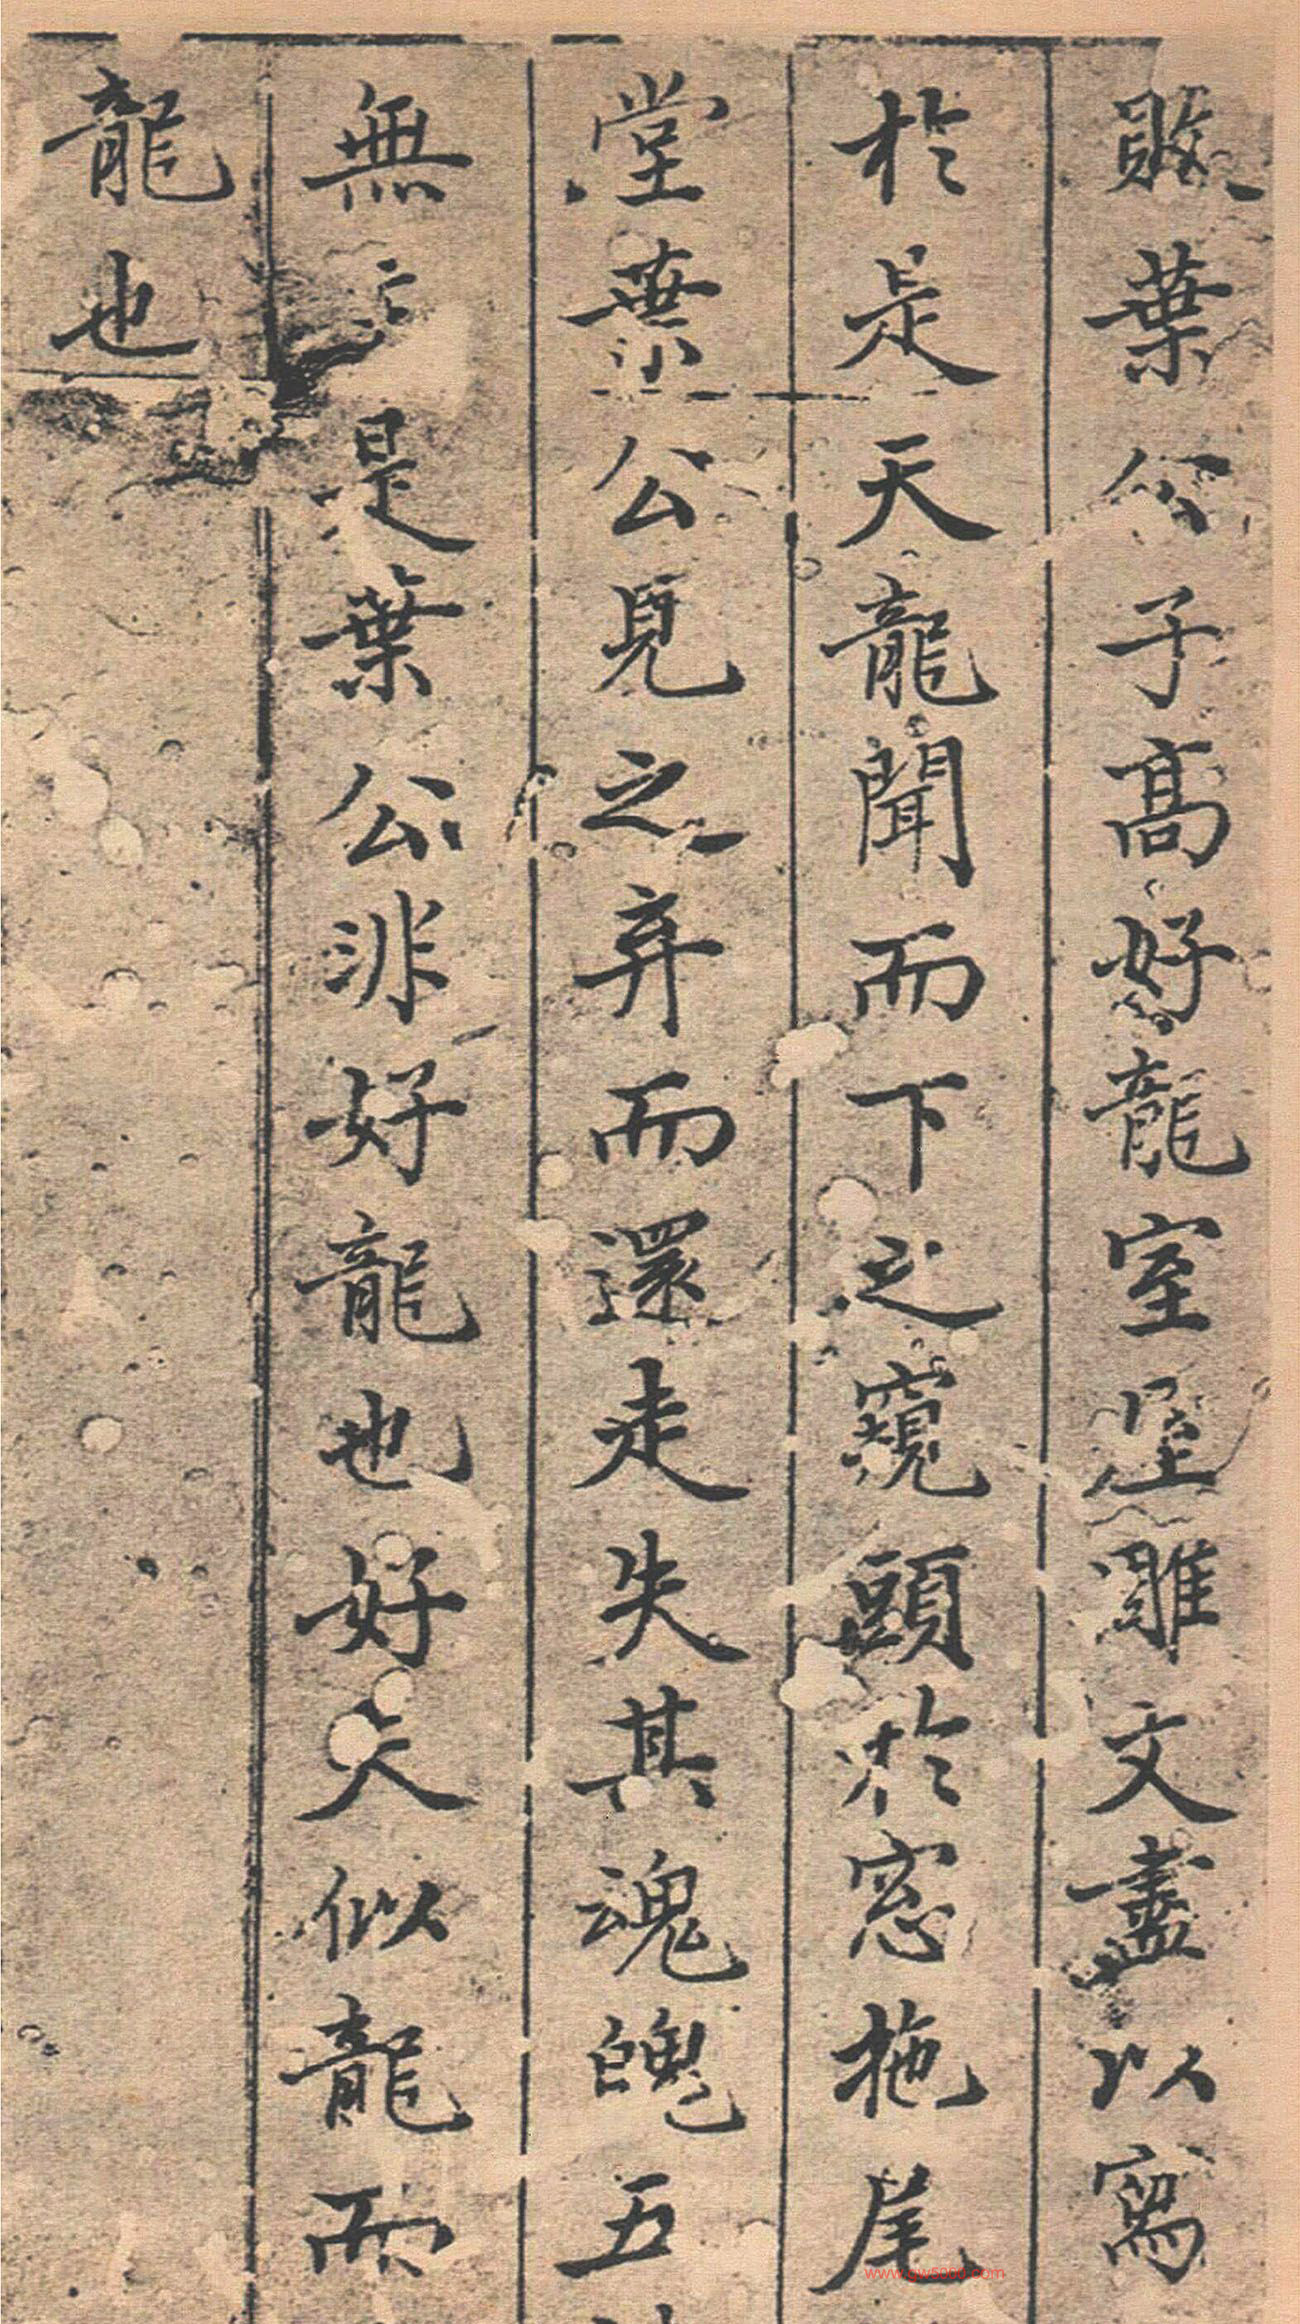 敗葉公子高好龍室屋雕文盡以寫
於是天龍聞而下之窺頭於窓拖尾
堂葉公見之弃而還走失其魂魄五
無主是葉公非好龍也好夫似龍而
龍也
www.gw5000.com